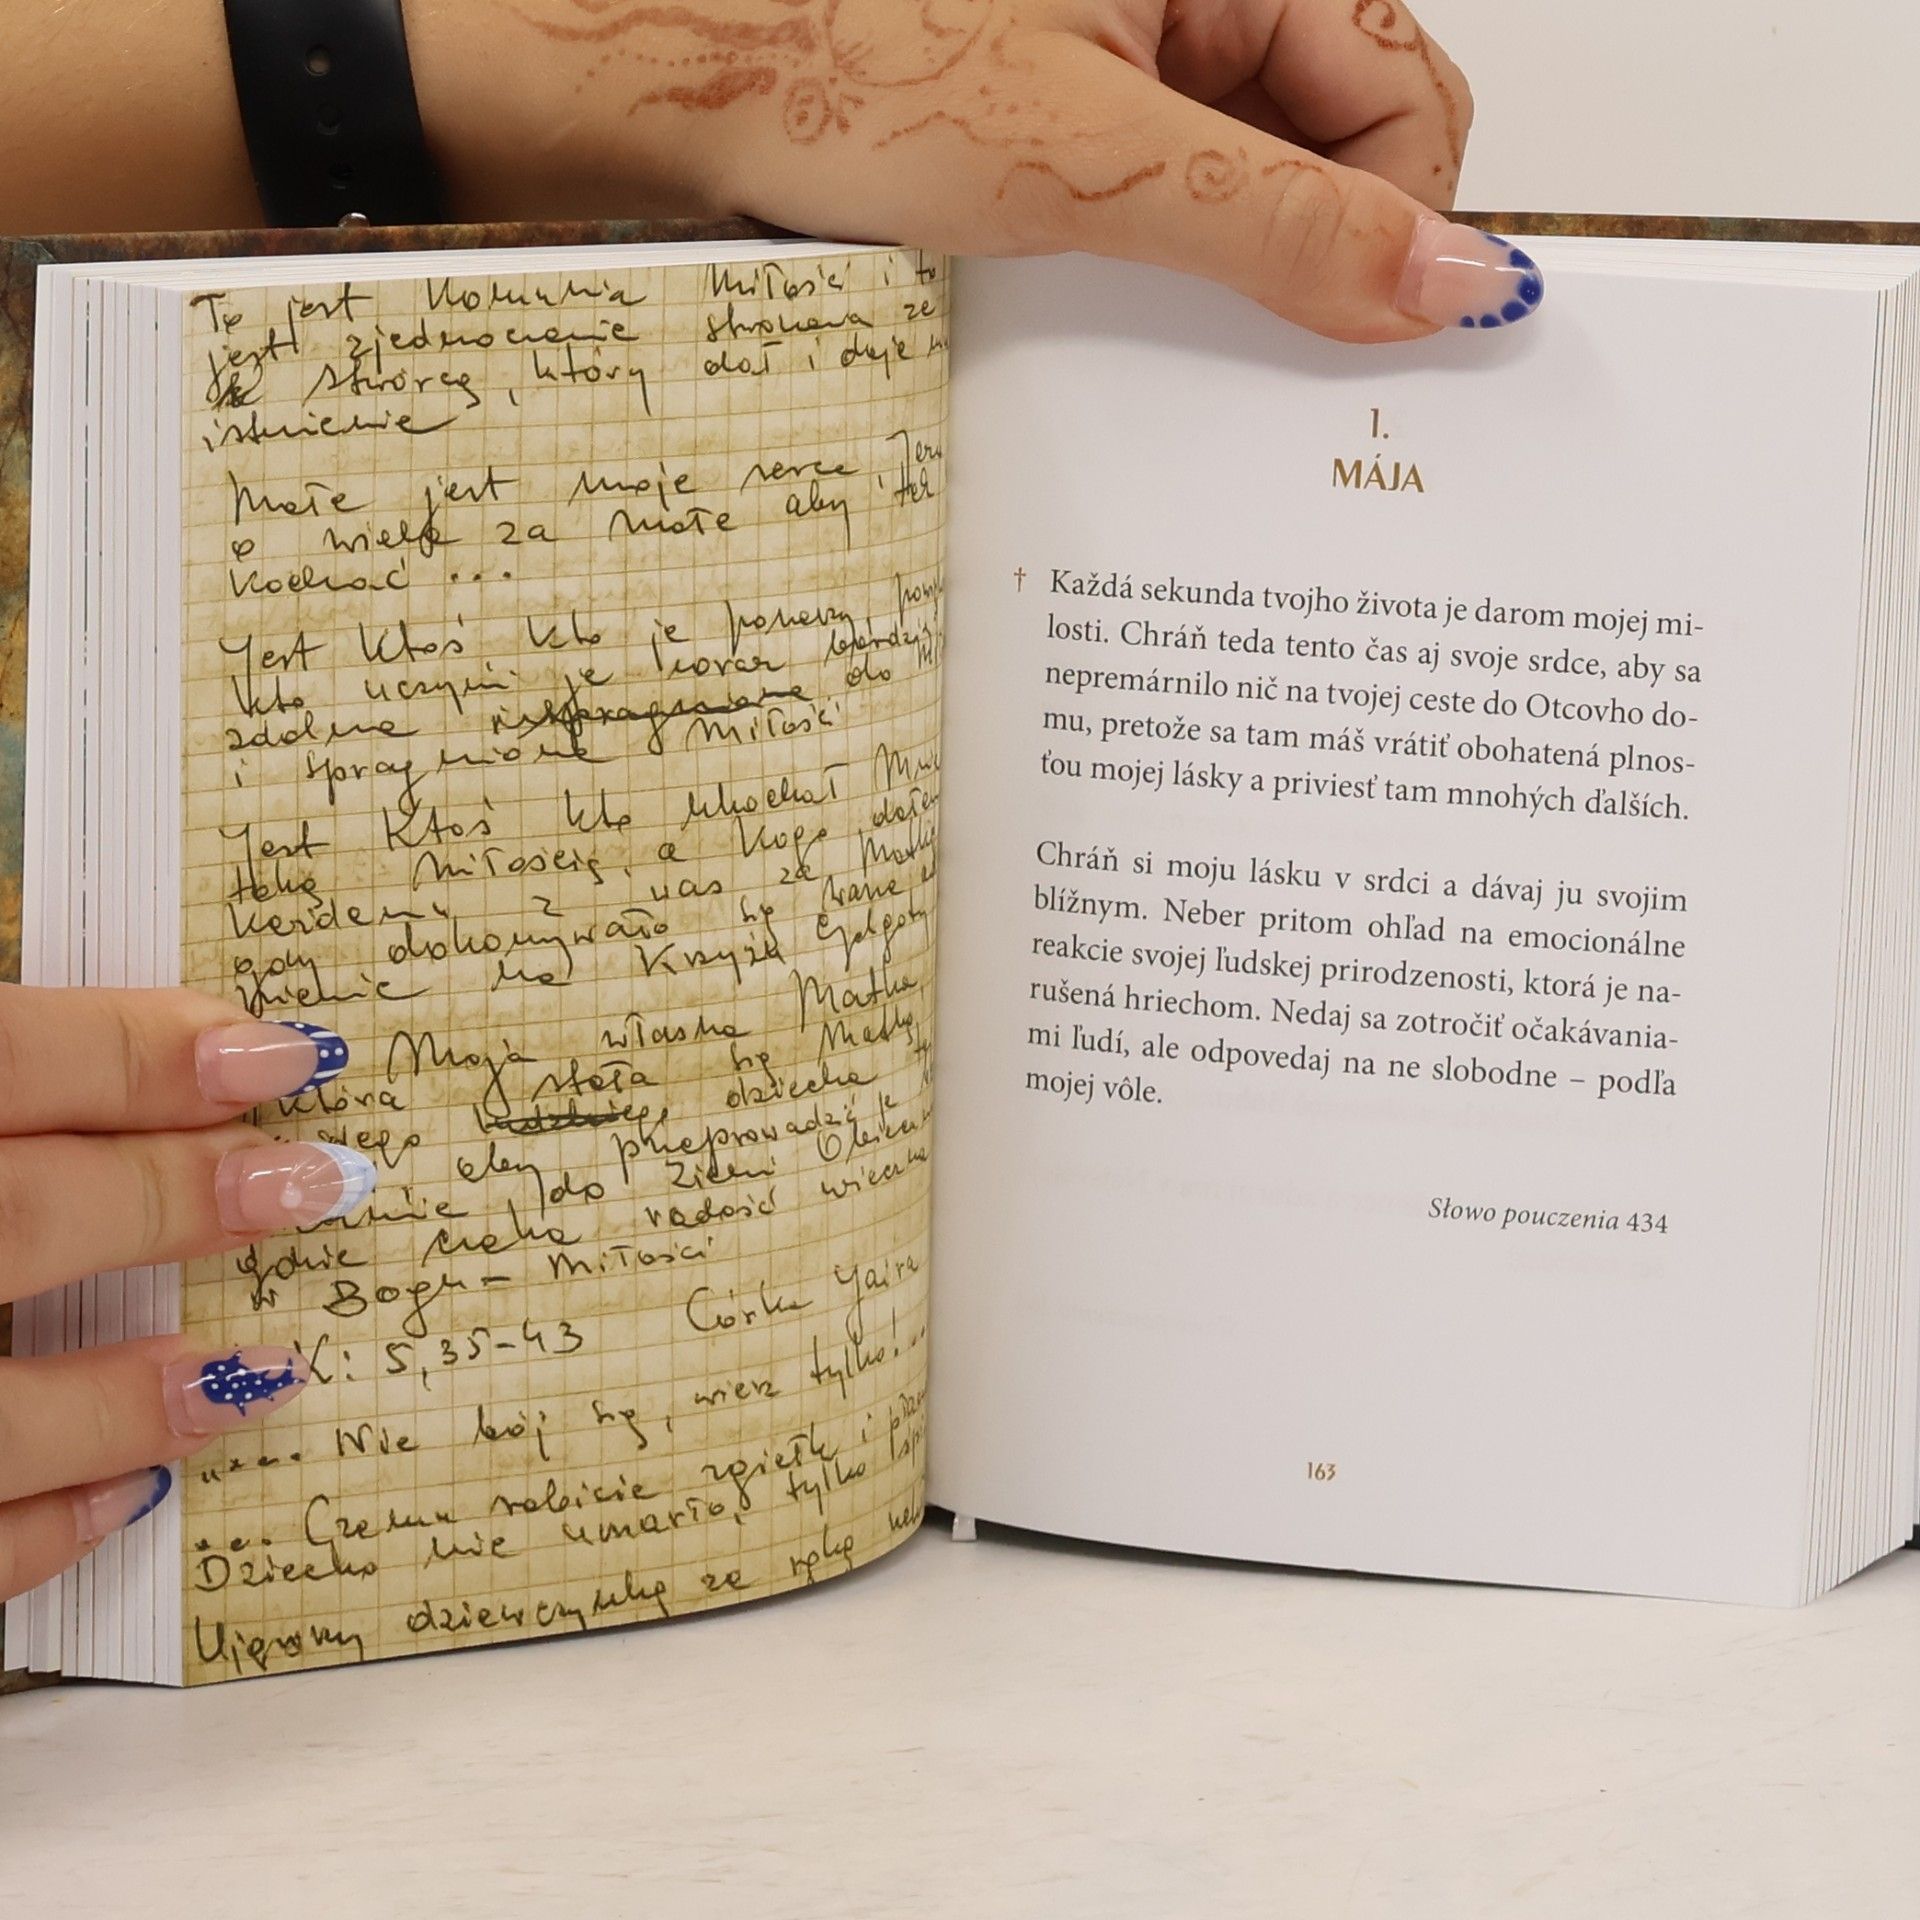 To jest Komunia Miłości i to
jest zjednoczenie stworzenia ze
Stwórcą, który dał i daje
istnienie
Małe jest moje serce,
o wiele za małe aby tak
kochać ...
Jest Ktoś kto je poszerzy
kto uczyni je coraz bardziej
zdolne do
i spragnione Miłości
Jest Ktoś kto ukochał Mnie
taką Miłością, a Kogo dałem
każdemu z was za Matkę
gdy dokonywało się
na Krzyżu Golgoty
Moja własna Matka,
która stała się Matką
dziecka
aby przeprowadzić je
do Ziemi
gdzie czeka radość wieczna
w Bogu - Miłości
: 5,35-43 Córka Jaira
"... Nie bój się, wierz tylko!...
... Czemu robicie zgiełk i
Dziecko nie umarło, tylko śpi
Ująwszy dziewczynkę za rękę
1.
MÁJA
† Každá sekunda tvojho života je darom mojej mi-
losti. Chráň teda tento čas aj svoje srdce, aby sa
nepremárnilo nič na tvojej ceste do Otcovho do-
mu, pretože sa tam máš vrátiť obohatená plnos-
ťou mojej lásky a priviesť tam mnohých ďalších.
Chráň si moju lásku v srdci a dávaj ju svojim
blížnym. Neber pritom ohľad na emocionálne
reakcie svojej ľudskej prirodzenosti, ktorá je na-
rušená hriechom. Nedaj sa zotročiť očakávania-
mi ľudí, ale odpovedaj na ne slobodne – podľa
mojej vôle.
Słowo pouczenia 434
163